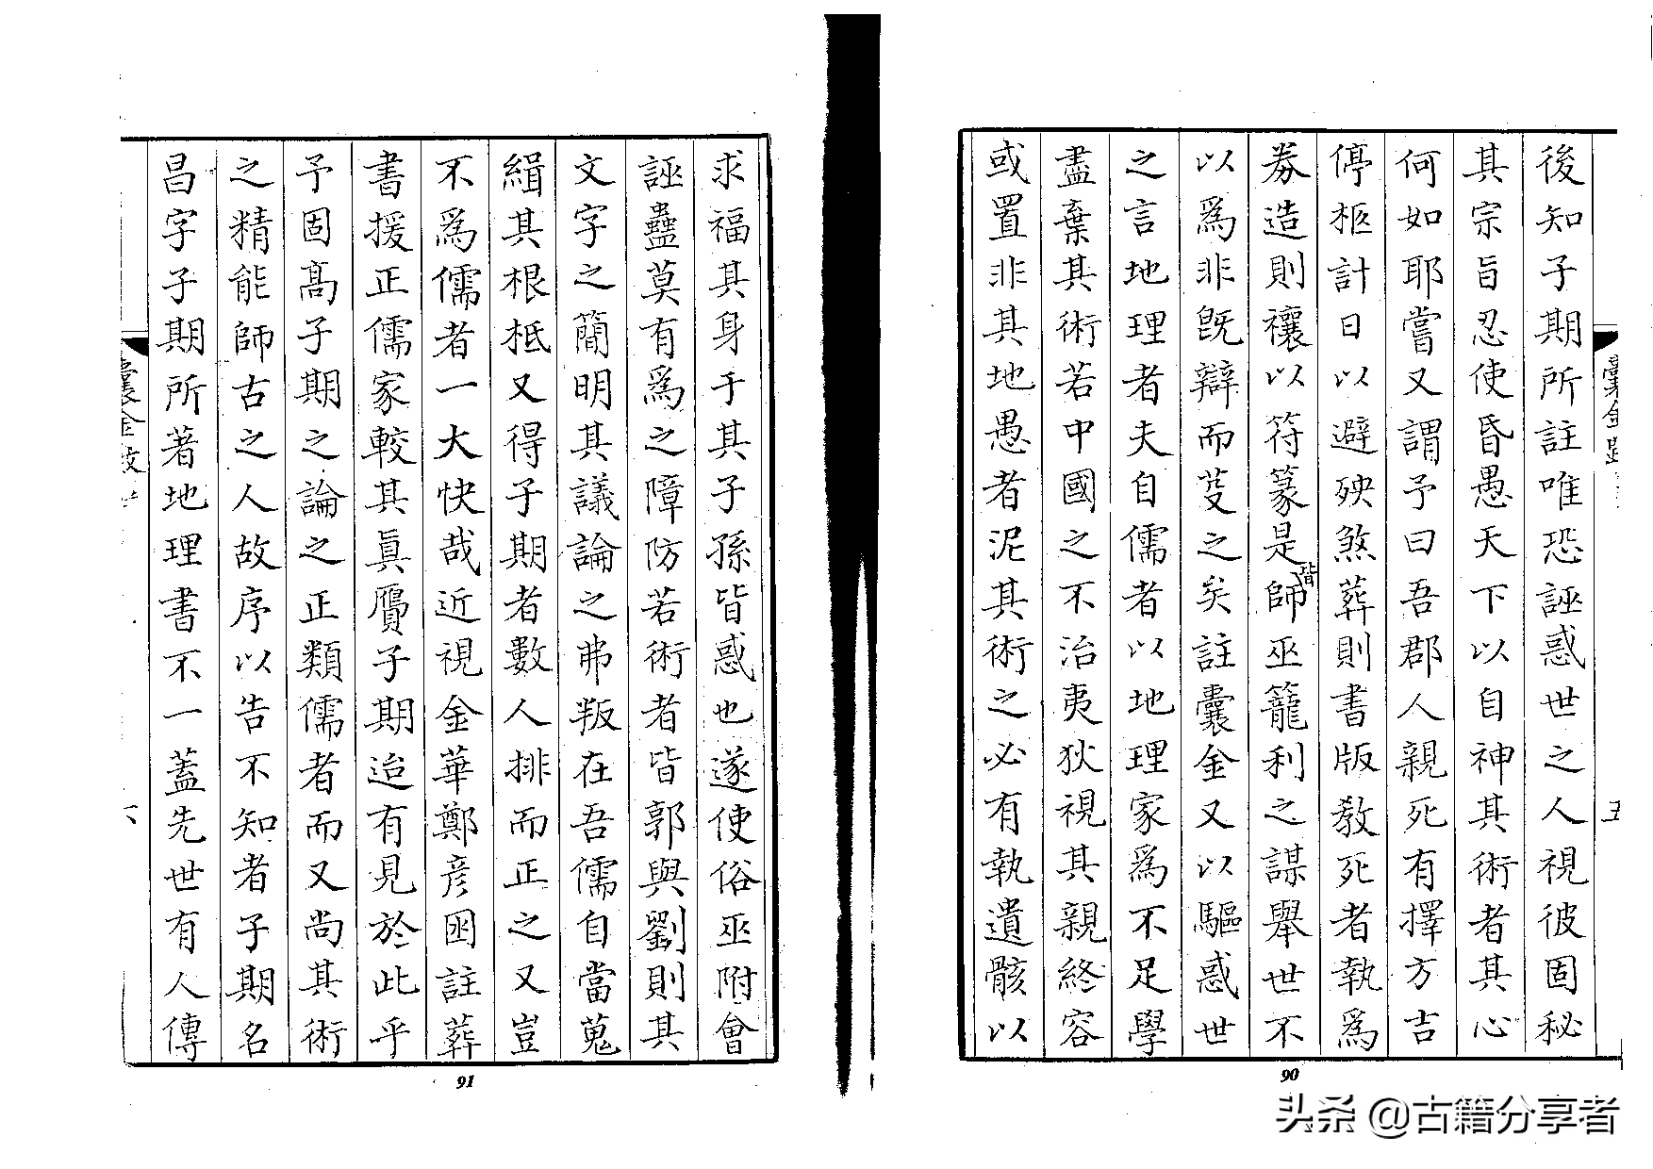 後知子期所註唯恐誣惑世之人視彼固秘
其宗旨忍使昏愚天下以自神其術者其心
何如耶嘗又謂予曰吾郡人親死有擇方吉
停柩計日以避殃煞葬則書版敎死者執爲
劵造則禳以符篆是皆師巫籠利之謀舉世不
以爲非旣辯而芟之矣註囊金又以驅惑世
之言地理者夫自儒者以地理家爲不足學
盡棄其術若中國之不治夷狄視其親終容
或置非其地愚者泥其術之必有執遺骸以
囊金
五
求福其身于其子孫皆惑也遂使俗巫附會
誣蠱莫有爲之障防若術者皆郭與劉則其
文字之簡明其議論之弗叛在吾儒自當蒐
緝其根柢又得子期者數人排而正之又豈
不爲儒者一大快哉近視金華鄭彦囦註葬
書援正儒家較其眞贋子期迨有見於此乎
予固髙子期之論之正類儒者而又尚其術
之精能師古之人故序以告不知者子期名
昌字子期所著地理書不一蓋先世有人傳
囊金
六
90
91
头条 @古籍分享者